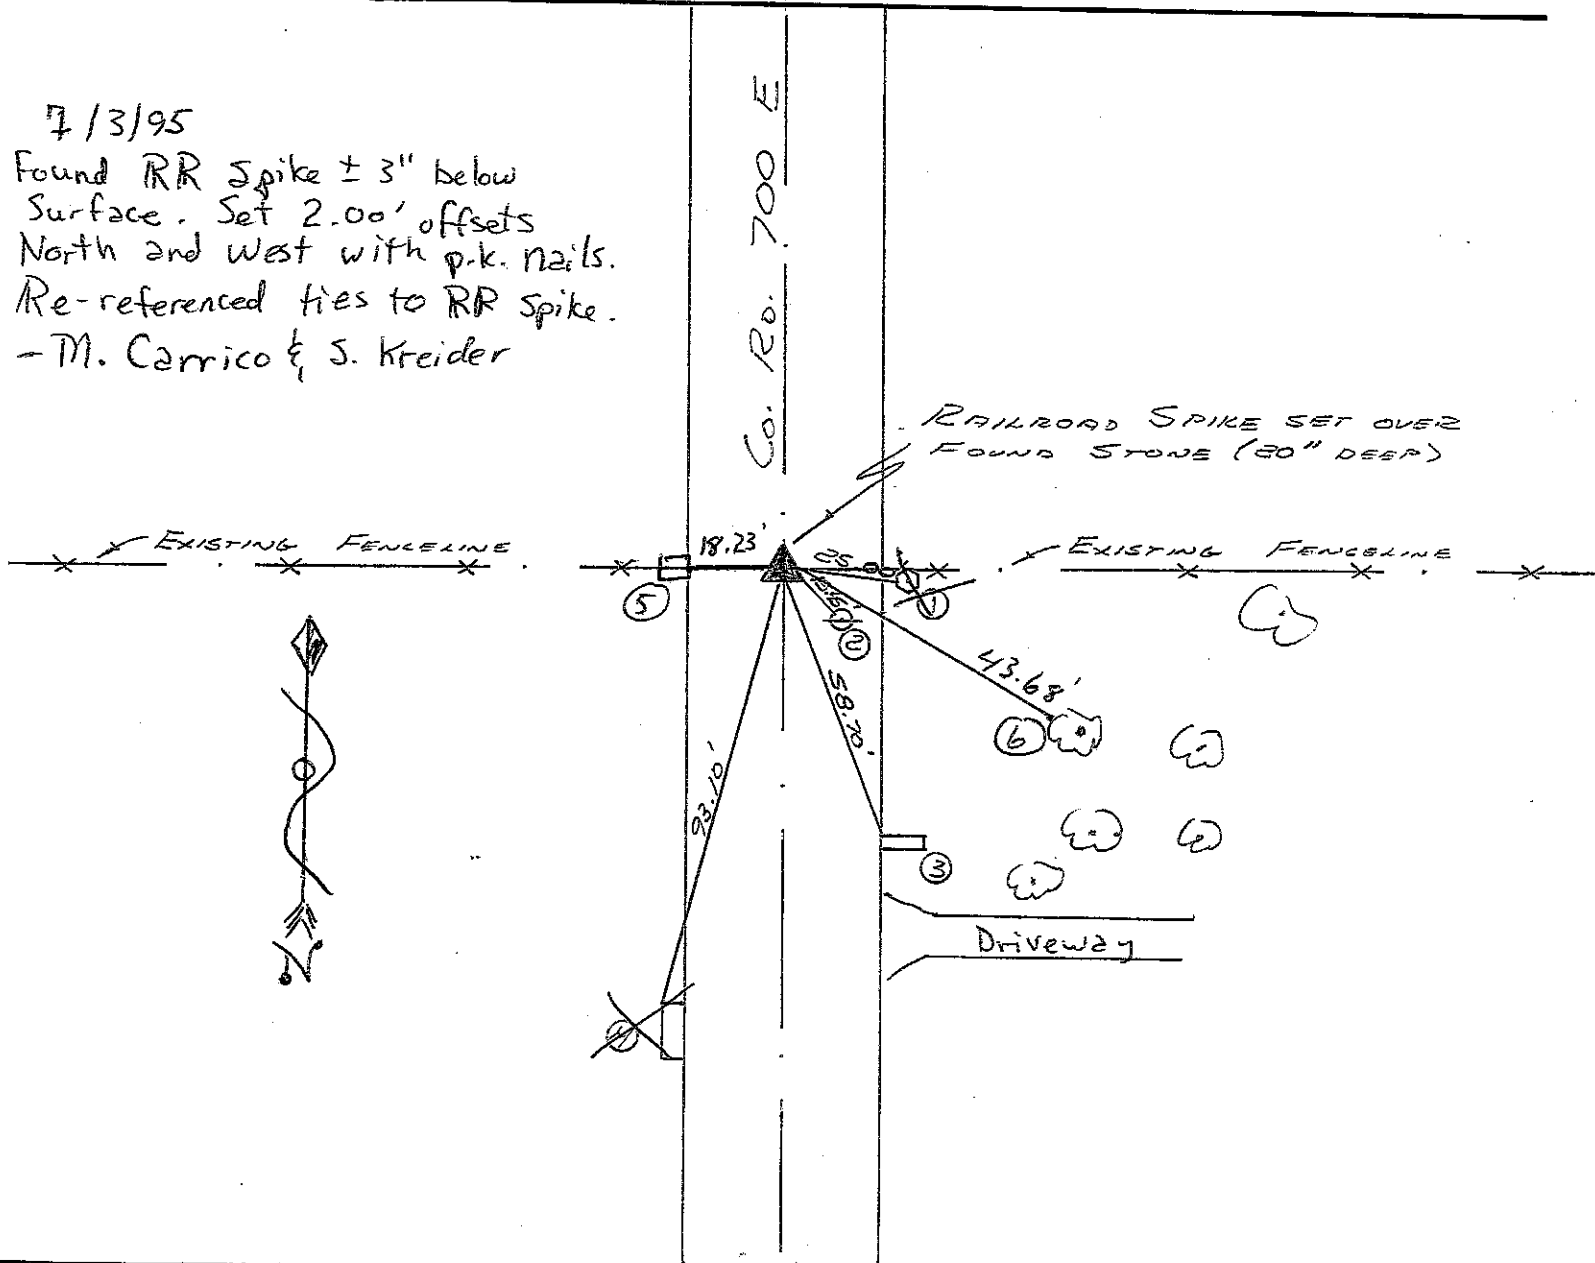 7/3/95
Found RR Spike ± 3" below
Surface. Set 2.00' offsets
North and West with p.k. nails.
Re-referenced ties to RR Spike.
- M. Carrico & S. Kreider
Co. Rd. 700 E
RAILROAD SPIKE SET OVER
FOUND STONE (20" DEEP)
EXISTING FENCELINE
18.23'
EXISTING FENCELINE
5
1
2
43.68'
58.70'
6
93.10'
3
Driveway
4
N